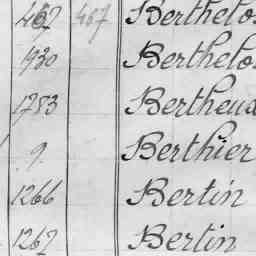 467 467 Berthelo
1930 Berthelo
1783 Bertheud
9. Berthier
1266 Bertin
1267 Bertin